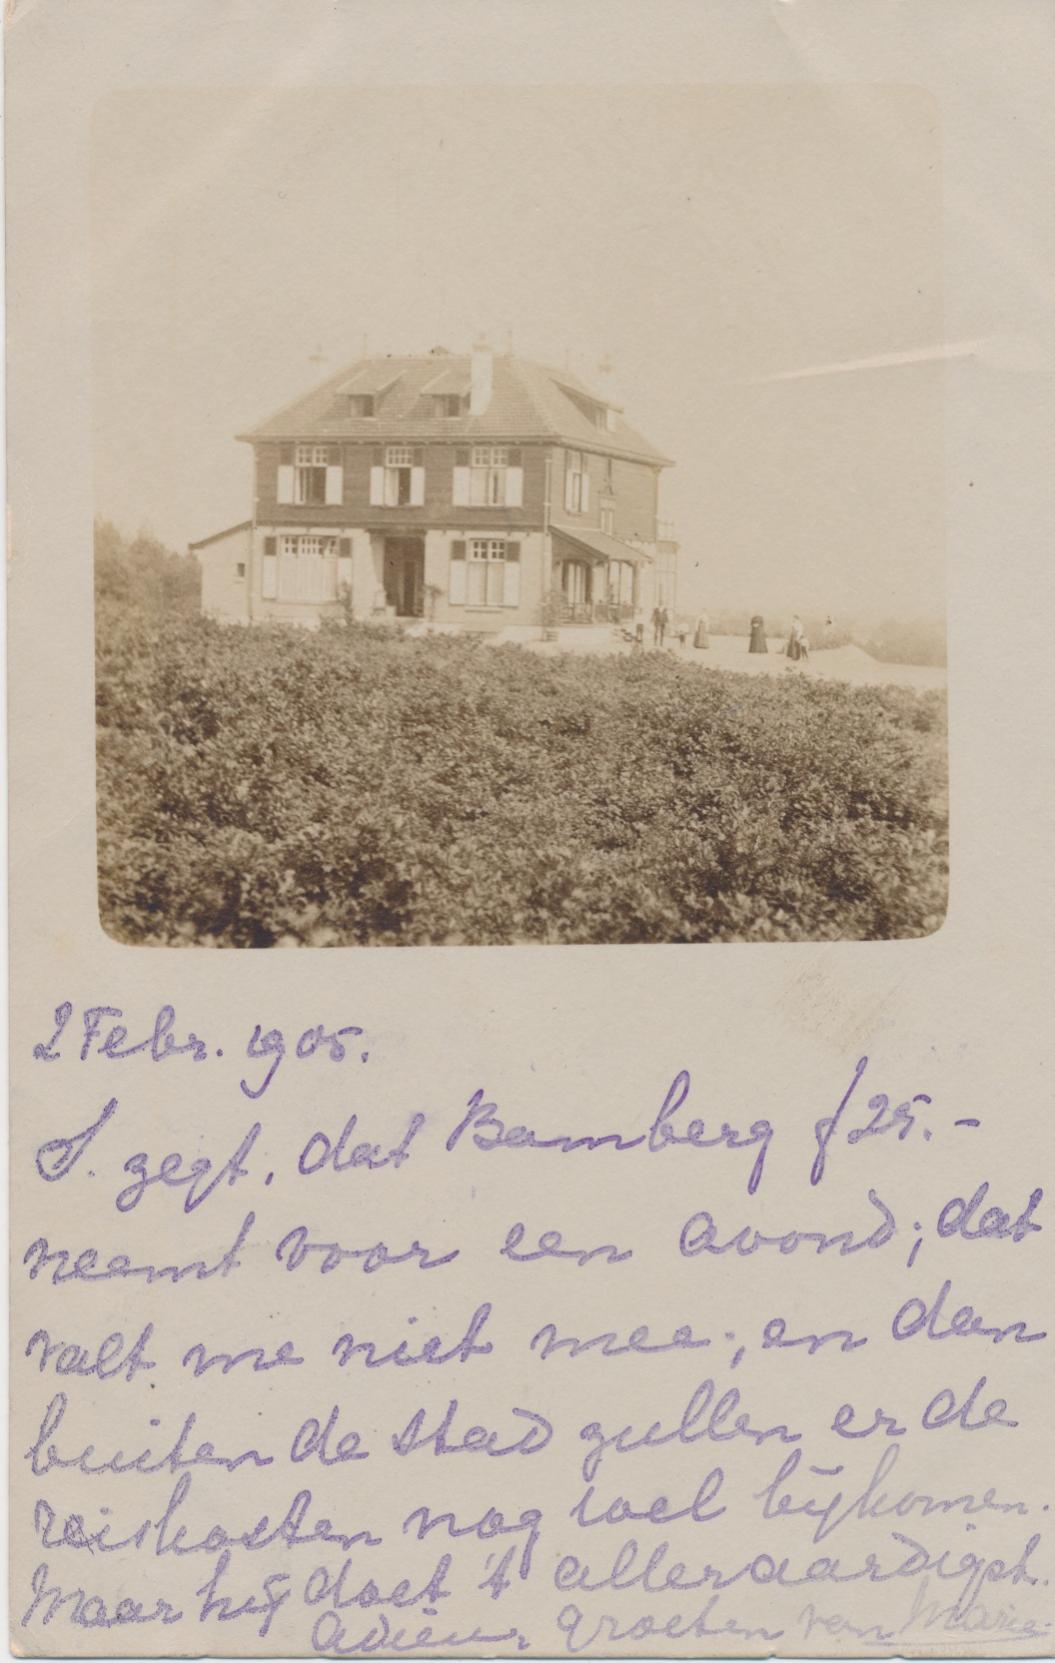 2 Febr. 1905.
S. zegt, dat Bamberg f 25.-
neemt voor een avond; dat
valt me niet mee; en dan
buiten de stad zullen er de
reiskosten nog wel bijkomen.
Maar hij doet 't alleraardigst.
Adieu, groeten van Marie